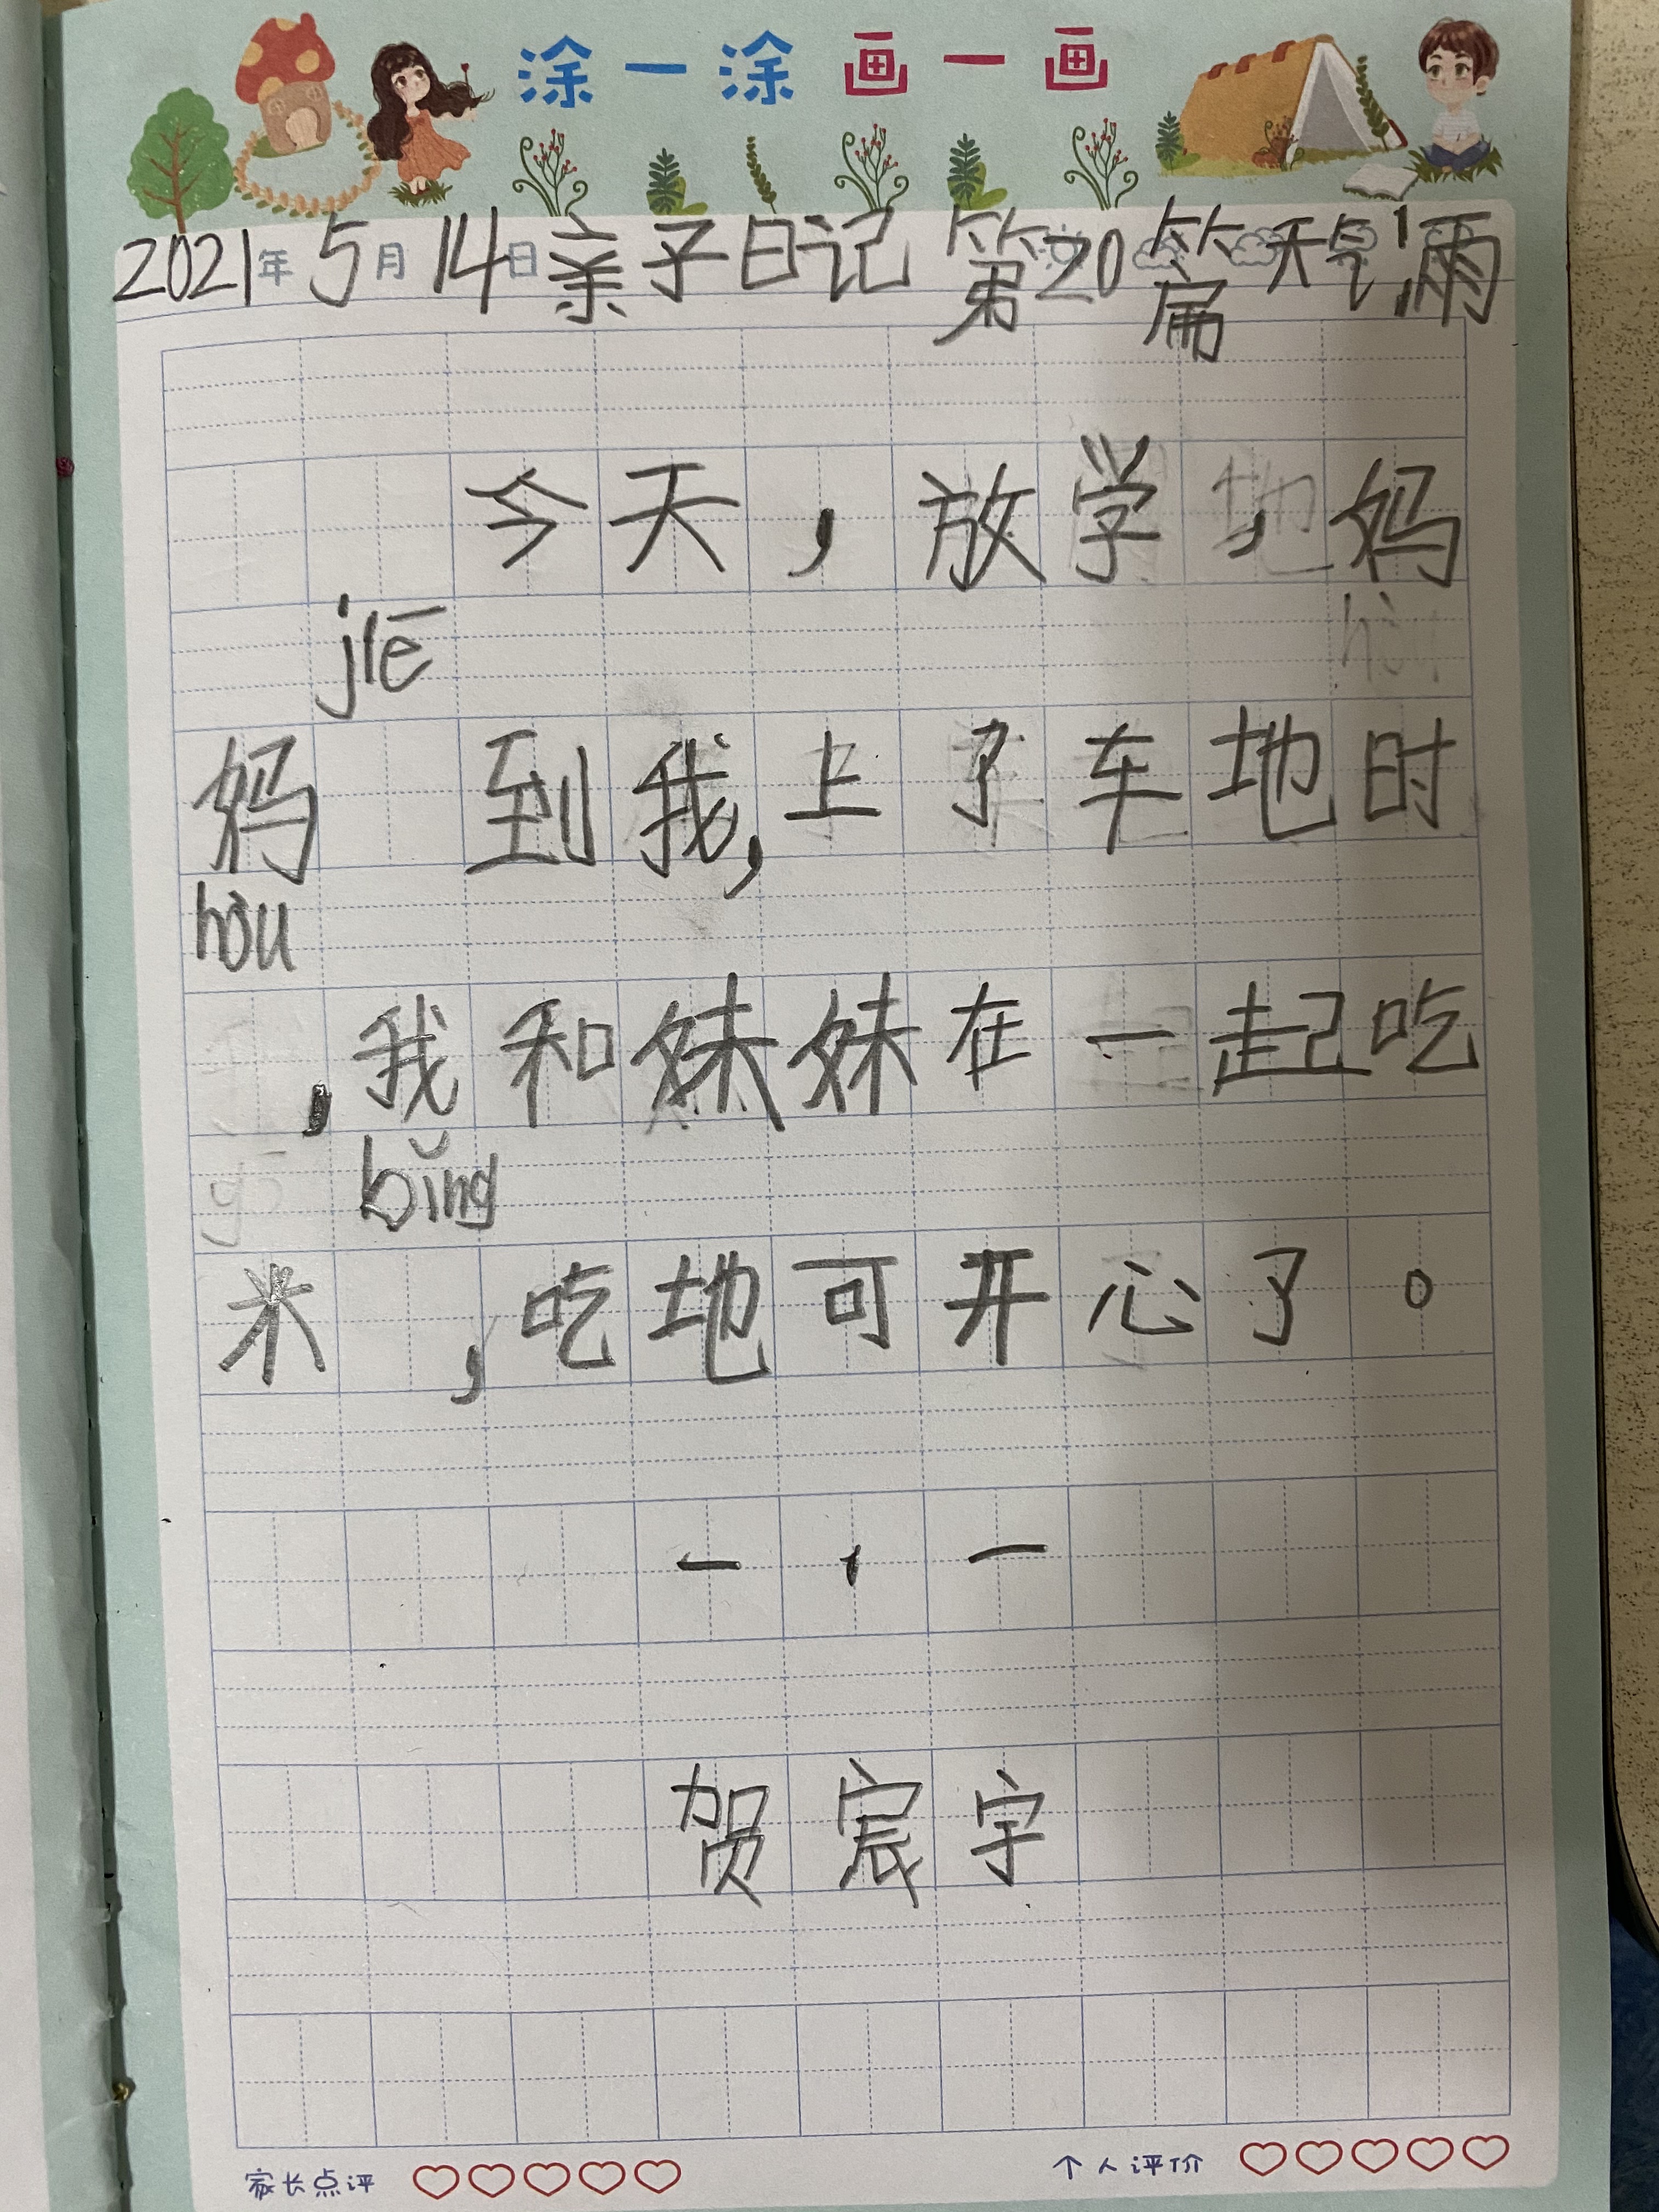 涂一涂 画一画
2021年5月14日亲子日记 第20篇天气:雨
今天,放学,妈
jiē
妈 到我,上了车地时
hòu
,我和妹妹在一起吃
bǐng
米 ,吃地可开心了。
一 , 一
贺宸宇
家长点评 个人评价